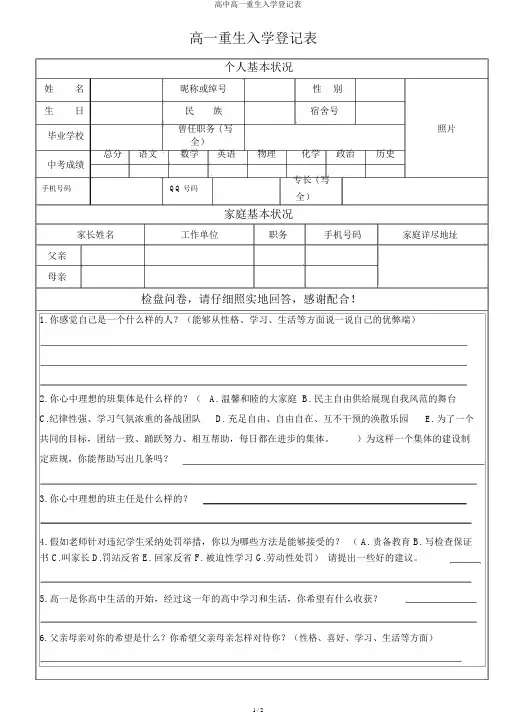 高中高一重生入学登记表
高一重生入学登记表
个人基本状况
姓 名 昵称或绰号 性 别
生 日 民 族 宿舍号
照片
毕业学校 曾任职务（写全）
总分 语文 数学 英语 物理 化学 政治 历史
中考成绩
手机号码 QQ 号码 专长（写全）
家庭基本状况
家长姓名 工作单位 职务 手机号码 家庭详尽地址
父亲
母亲
检盘问卷，请仔细照实地回答，感谢配合！
1.你感觉自己是一个什么样的人？（能够从性格、学习、生活等方面说一说自己的优弊端）
2.你心中理想的班集体是什么样的？（ A.温馨和睦的大家庭 B.民主自由供给展现自我风范的舞台
C.纪律性强、学习气氛浓重的备战团队 D.充足自由、自由自在、互不干预的涣散乐园 E.为了一个
共同的目标，团结一致、踊跃努力、相互帮助，每日都在进步的集体。 ）为这样一个集体的建设制
定班规，你能帮助写出几条吗？
3.你心中理想的班主任是什么样的？
4.假如老师针对违纪学生采纳处罚举措，你以为哪些方法是能够接受的？（ A.责备教育 B.写检查保证
书 C.叫家长 D.罚站反省 E.回家反省 F.被迫性学习 G.劳动性处罚） 请提出一些好的建议。
5.高一是你高中生活的开始，经过这一年的高中学习和生活，你希望有什么收获？
6.父亲母亲对你的希望是什么？你希望父亲母亲怎样对待你？（性格、喜好、学习、生活等方面）
1 / 2